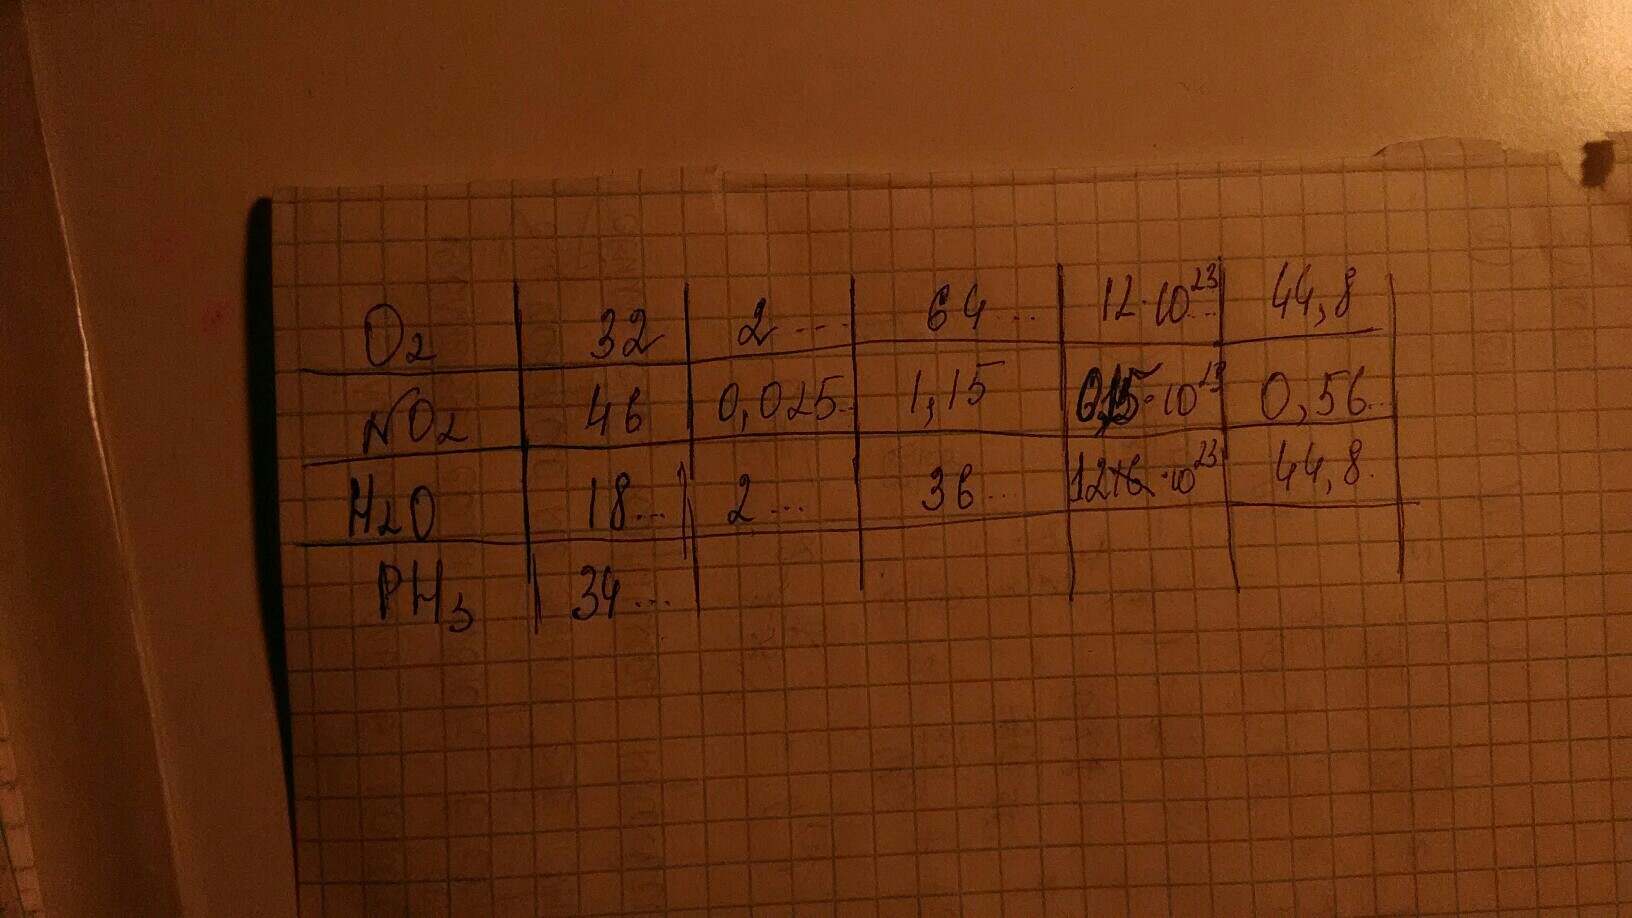 O₂ 32 2 ... 64 ... 12·10²³ ... 44,8
NO₂ 46 0,025.. 1,15 0,15·10²³ 0,56..
H₂O 18... 2 ... 36 ... 12 ·10²³ 44,8.
PH₃ 34 ...